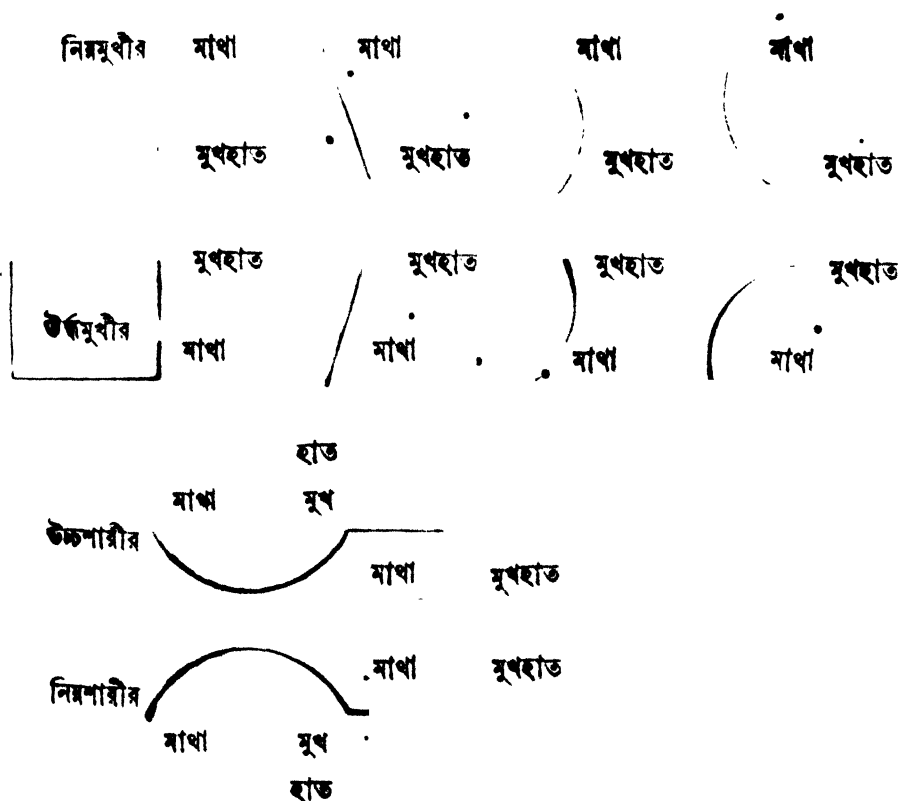 নিম্নমুখীর মাথা মাথা মাথা মাথা
মুখহাত মুখহাত মুখহাত মুখহাত
মুখহাত মুখহাত মুখহাত মুখহাত
ঊর্দ্ধমুখীর মাথা মাথা মাথা মাথা
হাত
মাথা মুখ
উচ্চশায়ীর
মাথা মুখহাত
মাথা মুখহাত
নিম্নশায়ীর
মাথা মুখ
হাত